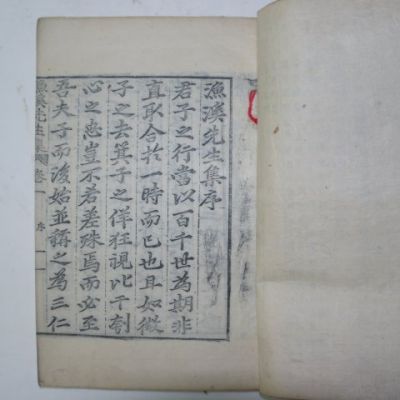 漁溪先生集序
君子之行當以百千世為期非
直取合於一時而已也且如微
子之去箕子之佯狂視比干剖
心之忠豈不若差殊焉而必至
吾夫子而後始並稱之為三仁
漁溪先生集 序 一